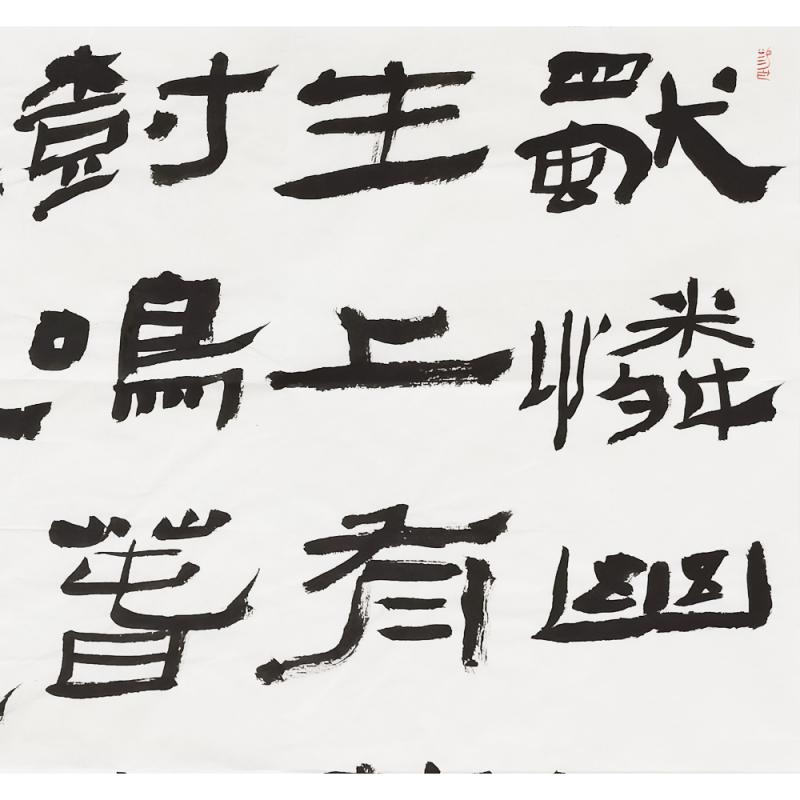 獨憐幽
生上有
樹鳴春